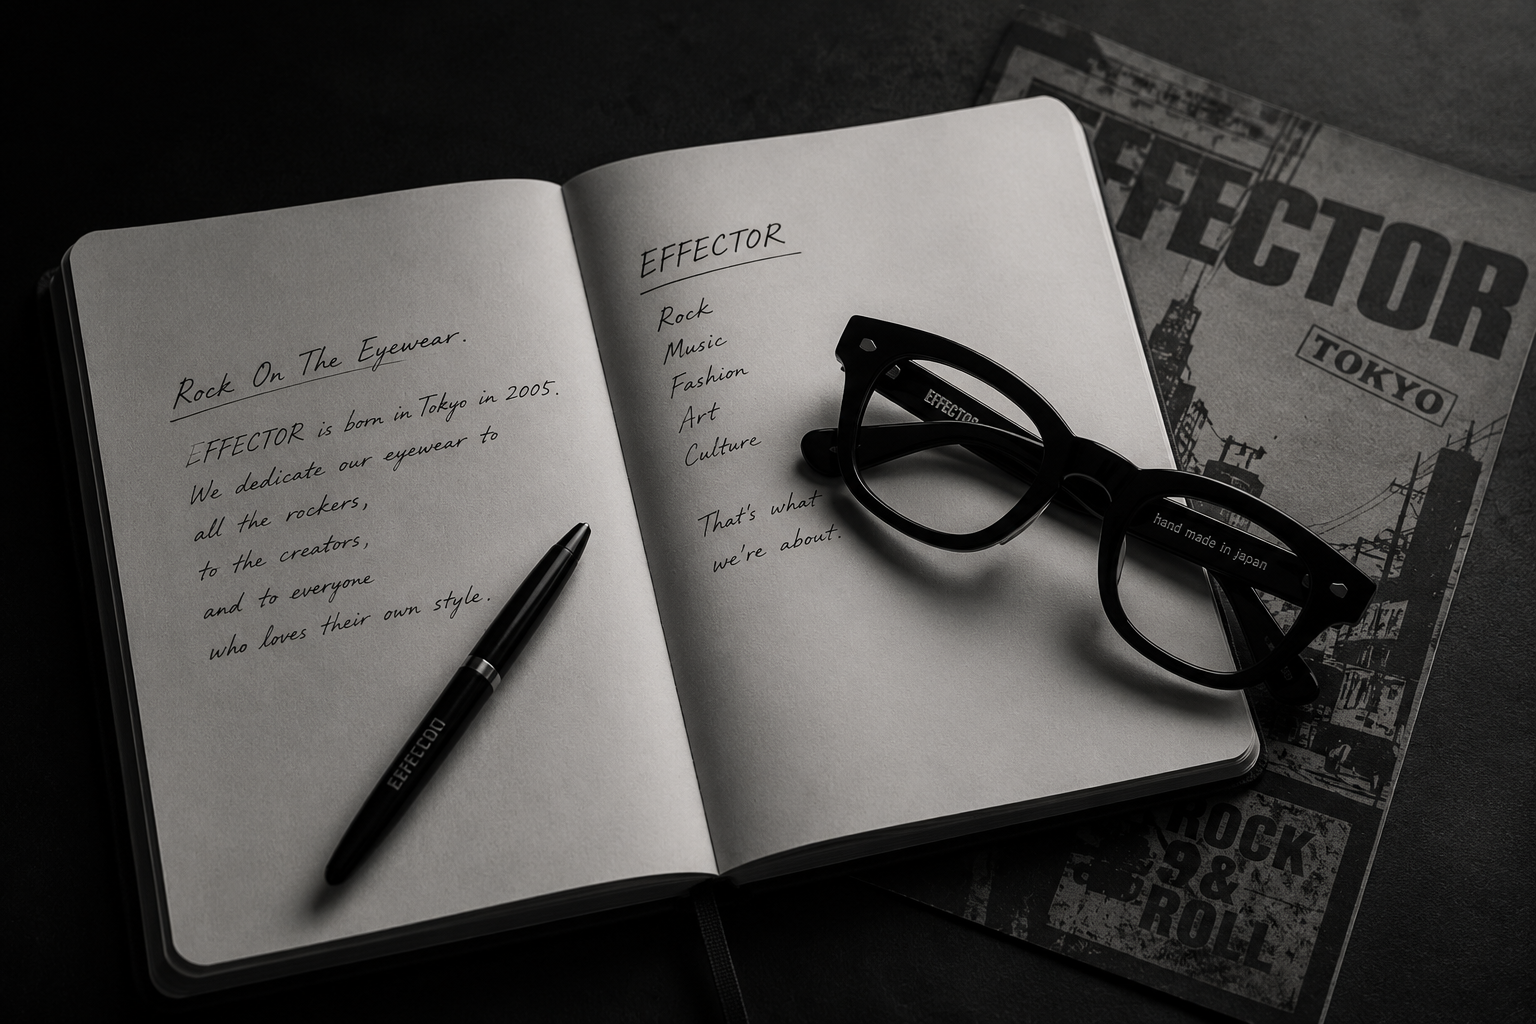 Rock On The Eyewear.
EFFECTOR is born in Tokyo in 2005.
We dedicate our eyewear to
all the rockers,
to the creators,
and to everyone
who loves their own style.
EEFECCOO
EFFECTOR
Rock
Music
Fashion
Art
Culture
That's what
we're about.
EFFECTOR
hand made in japan
EFFECTOR
TOKYO
ROCK
&
ROLL